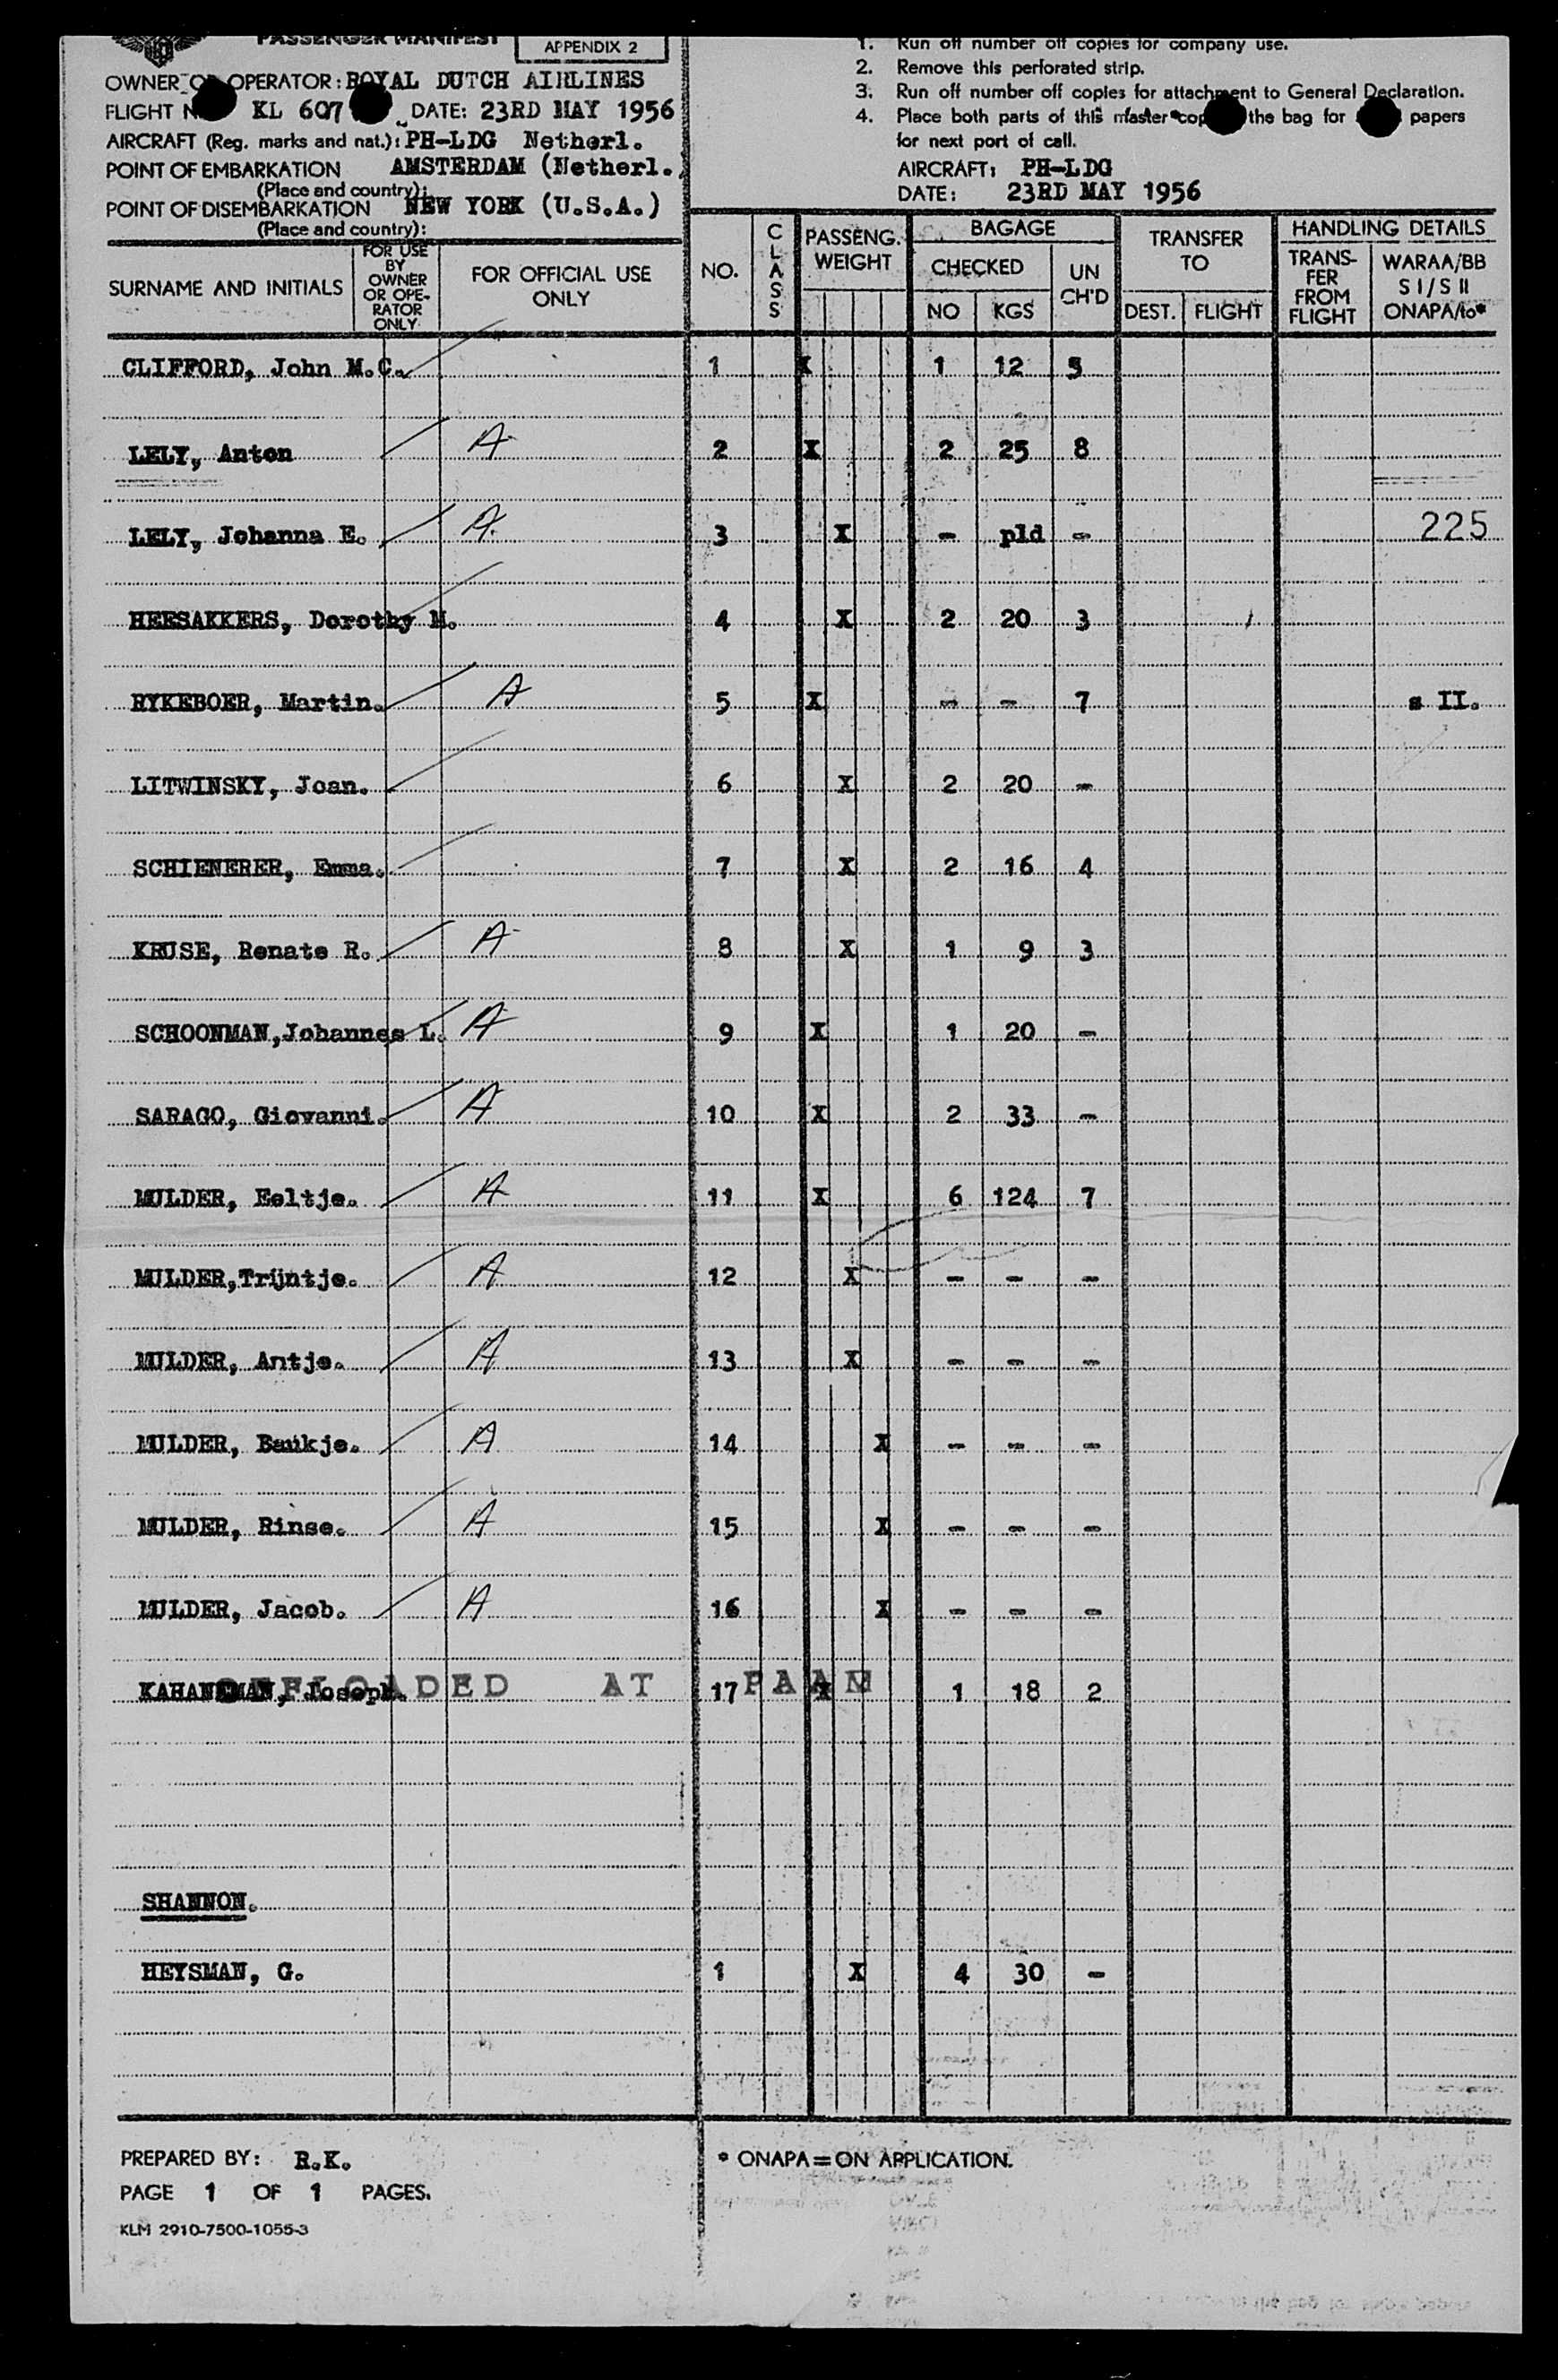 PASSENGER MANIFEST
APPENDIX 2
OWNER OR OPERATOR: ROYAL DUTCH AIRLINES
FLIGHT KL 607 DATE: 23RD MAY 1956
AIRCRAFT (Reg. marks and nat.): PH-LDG Netherl.
POINT OF EMBARKATION AMSTERDAM (Netherl.
(Place and country):
POINT OF DISEMBARKATION NEW YORK (U.S.A.)
(Place and country):
1. Run off number off copies for company use.
2. Remove this perforated strip.
3. Run off number off copies for attachment to General Declaration.
4. Place both parts of this master the bag for papers
for next port of call.
AIRCRAFT: PH-LDG
DATE: 23RD MAY 1956
SURNAME AND INITIALS
FOR USE
BY
OWNER
OR OPE-
RATOR
ONLY
FOR OFFICIAL USE
ONLY
NO.
CLASS
PASSENG.
WEIGHT
BAGAGE
CHECKED
NO KGS
UN
CH'D
TRANSFER
TO
DEST. FLIGHT
HANDLING DETAILS
TRANS-
FER
FROM
FLIGHT
WARAA/BB
S I/S II
ONAPA/to*
CLIFFORD, John M.C. 1 X 1 12 5
LELY, Anton A 2 X 2 25 8
LELY, Johanna E. A. 3 X - pld - 225
HEESAKKERS, Dorothy M. 4 X 2 20 3
RYKEBOER, Martin. A 5 X - - 7 s II.
LITWINSKY, Joan. 6 X 2 20 -
SCHIENERER, Emma. 7 X 2 16 4
KRUSE, Renate R. A 8 X 1 9 3
SCHOONMAN,Johannes L. A 9 X 1 20 -
SARAGO, Giovanni. A 10 X 2 33 -
MULDER, Eeltje. A 11 X 6 124 7
MULDER,Trijntje. A 12 X - - -
MULDER, Antje. A 13 X - - -
MULDER, Baukje. A 14 X - - -
MULDER, Rinse. A 15 X - - -
MULDER, Jacob. A 16 X - - -
KAHANEMAN, Joseph. 17 X 1 18 2
OFFLOADED AT PAAM
SHANNON.
HEYSMAN, G. 1 X 4 30 -
PREPARED BY: R.K.
PAGE 1 OF 1 PAGES.
KLM 2910-7500-1055-3
* ONAPA = ON APPLICATION.